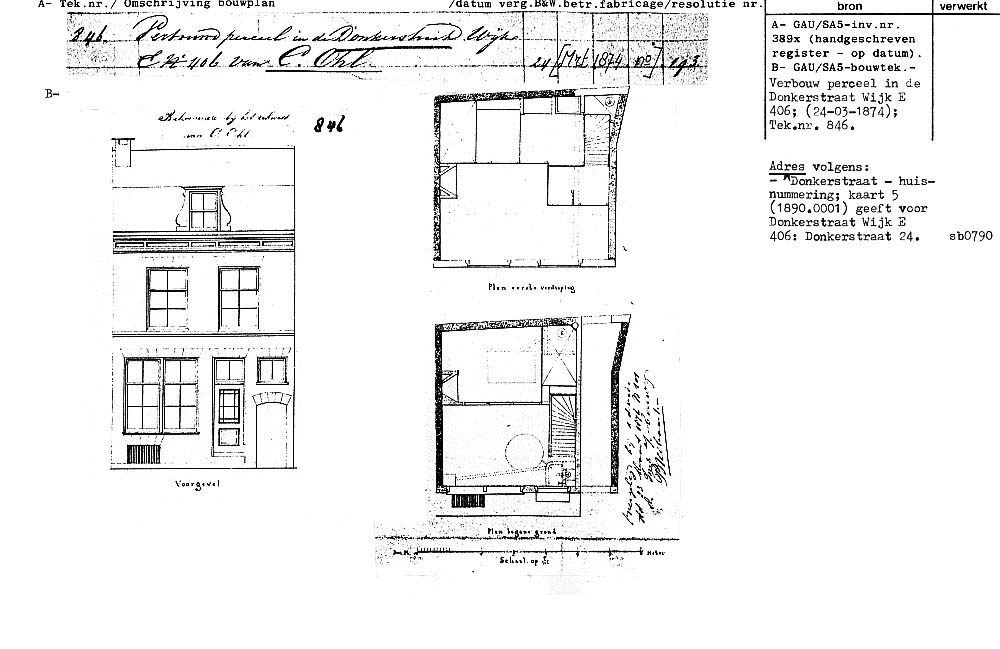 A- Tek.nr./ Omschrijving bouwplan /datum verg.B&W.betr.fabricage/resolutie nr.
bron verwerkt
846. Verbouwd perceel in de Donkerstraat Wijk
E No 406 van C. Ohl. 24 [Mrt 1874 no]. 193.
A- GAU/SA5-inv.nr.
389x (handgeschreven
register - op datum).
B- GAU/SA5-bouwtek.-
Verbouw perceel in de
Donkerstraat Wijk E
406; (24-03-1874);
Tek.nr. 846.
Adres volgens:
- ^Donkerstraat - huis-
nummering; kaart 5
(1890.0001) geeft voor
Donkerstraat Wijk E
406: Donkerstraat 24. sb0790
B-
Behoorende bij het adres
van C. Ohl
846
Voorgevel
Plan eerste verdieping
Plan begane grond
Schaal op
Meter